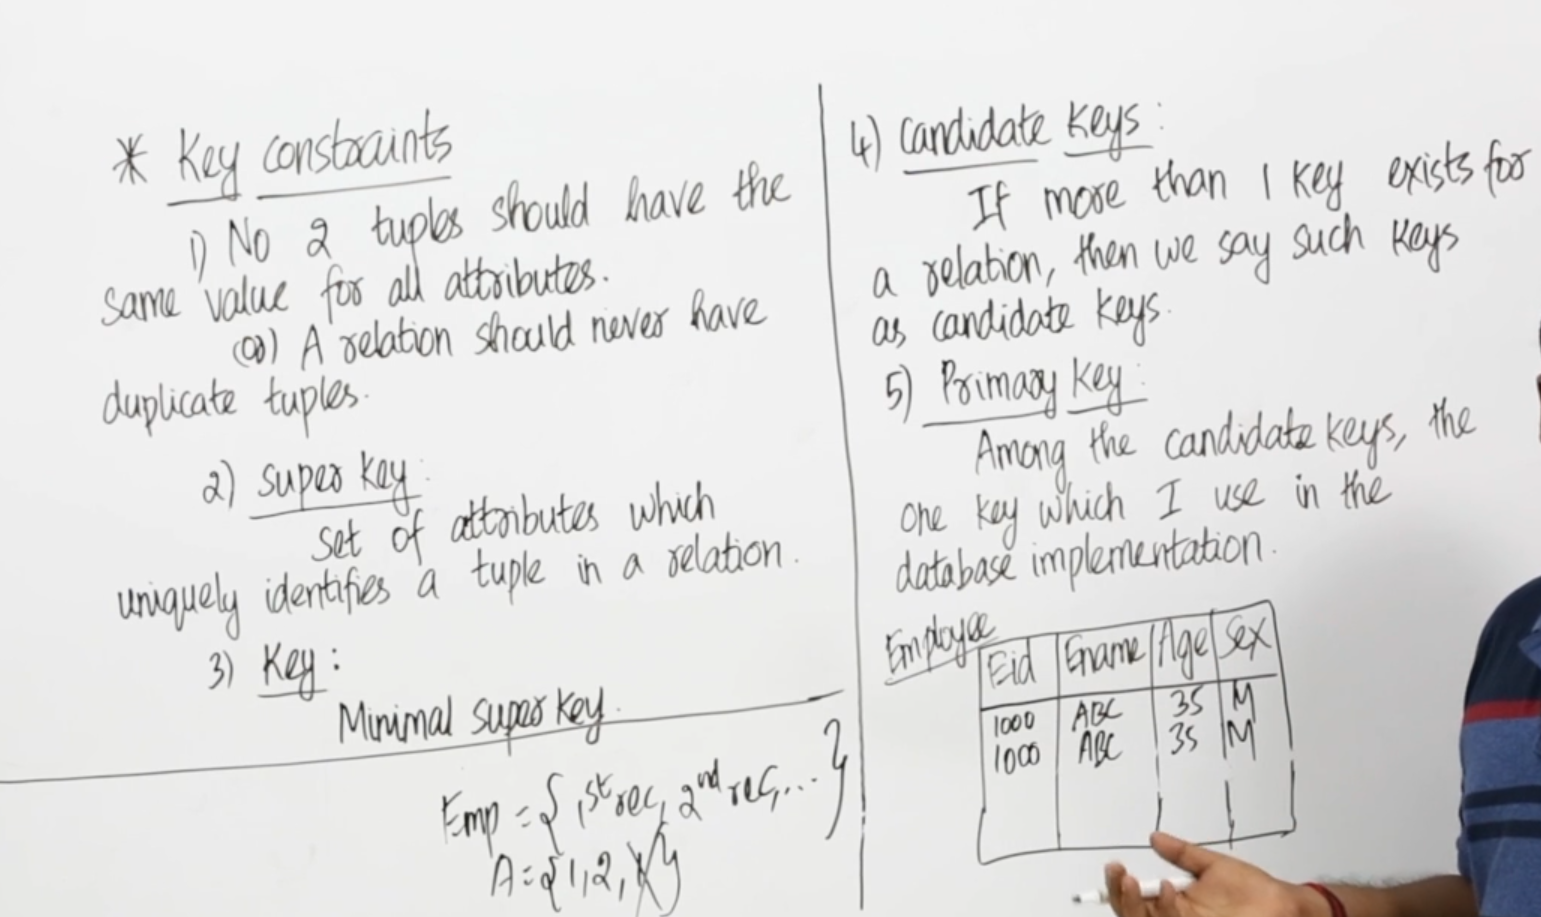 * Key constraints
1) No 2 tuples should have the
same value for all attributes.
(or) A relation should never have
duplicate tuples.
2) super key:
set of attributes which
uniquely identifies a tuple in a relation.
3) Key:
Minimal super key.
Emp = {1st rec, 2nd rec, ... }
A = {1, 2, }
4) Candidate Keys:
If more than 1 key exists for
a relation, then we say such keys
as candidate keys.
5) Primary key:
Among the candidate keys, the
one key which I use in the
database implementation.
Employee
Eid Ename Age Sex
1000 ABC 35 M
1000 ABC 35 M